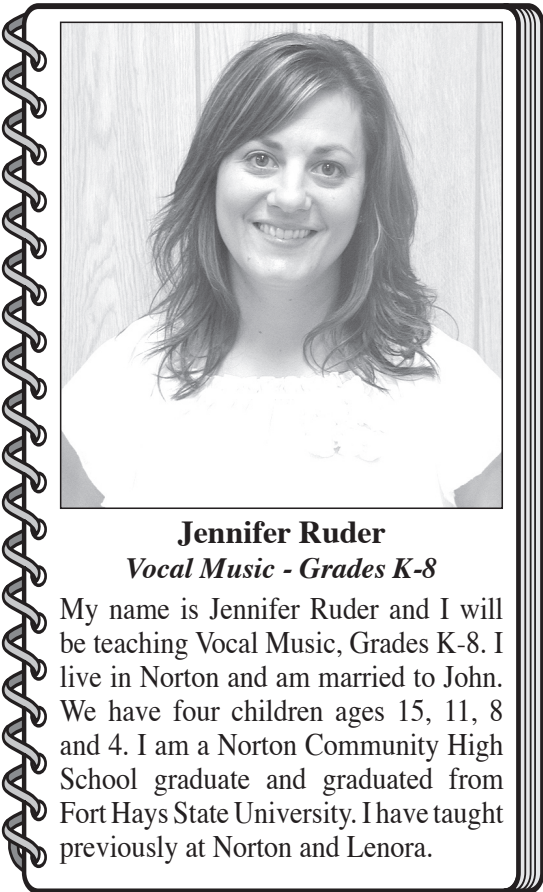 Jennifer Ruder
Vocal Music - Grades K-8
My name is Jennifer Ruder and I will
be teaching Vocal Music, Grades K-8. I
live in Norton and am married to John.
We have four children ages 15, 11, 8
and 4. I am a Norton Community High
School graduate and graduated from
Fort Hays State University. I have taught
previously at Norton and Lenora.